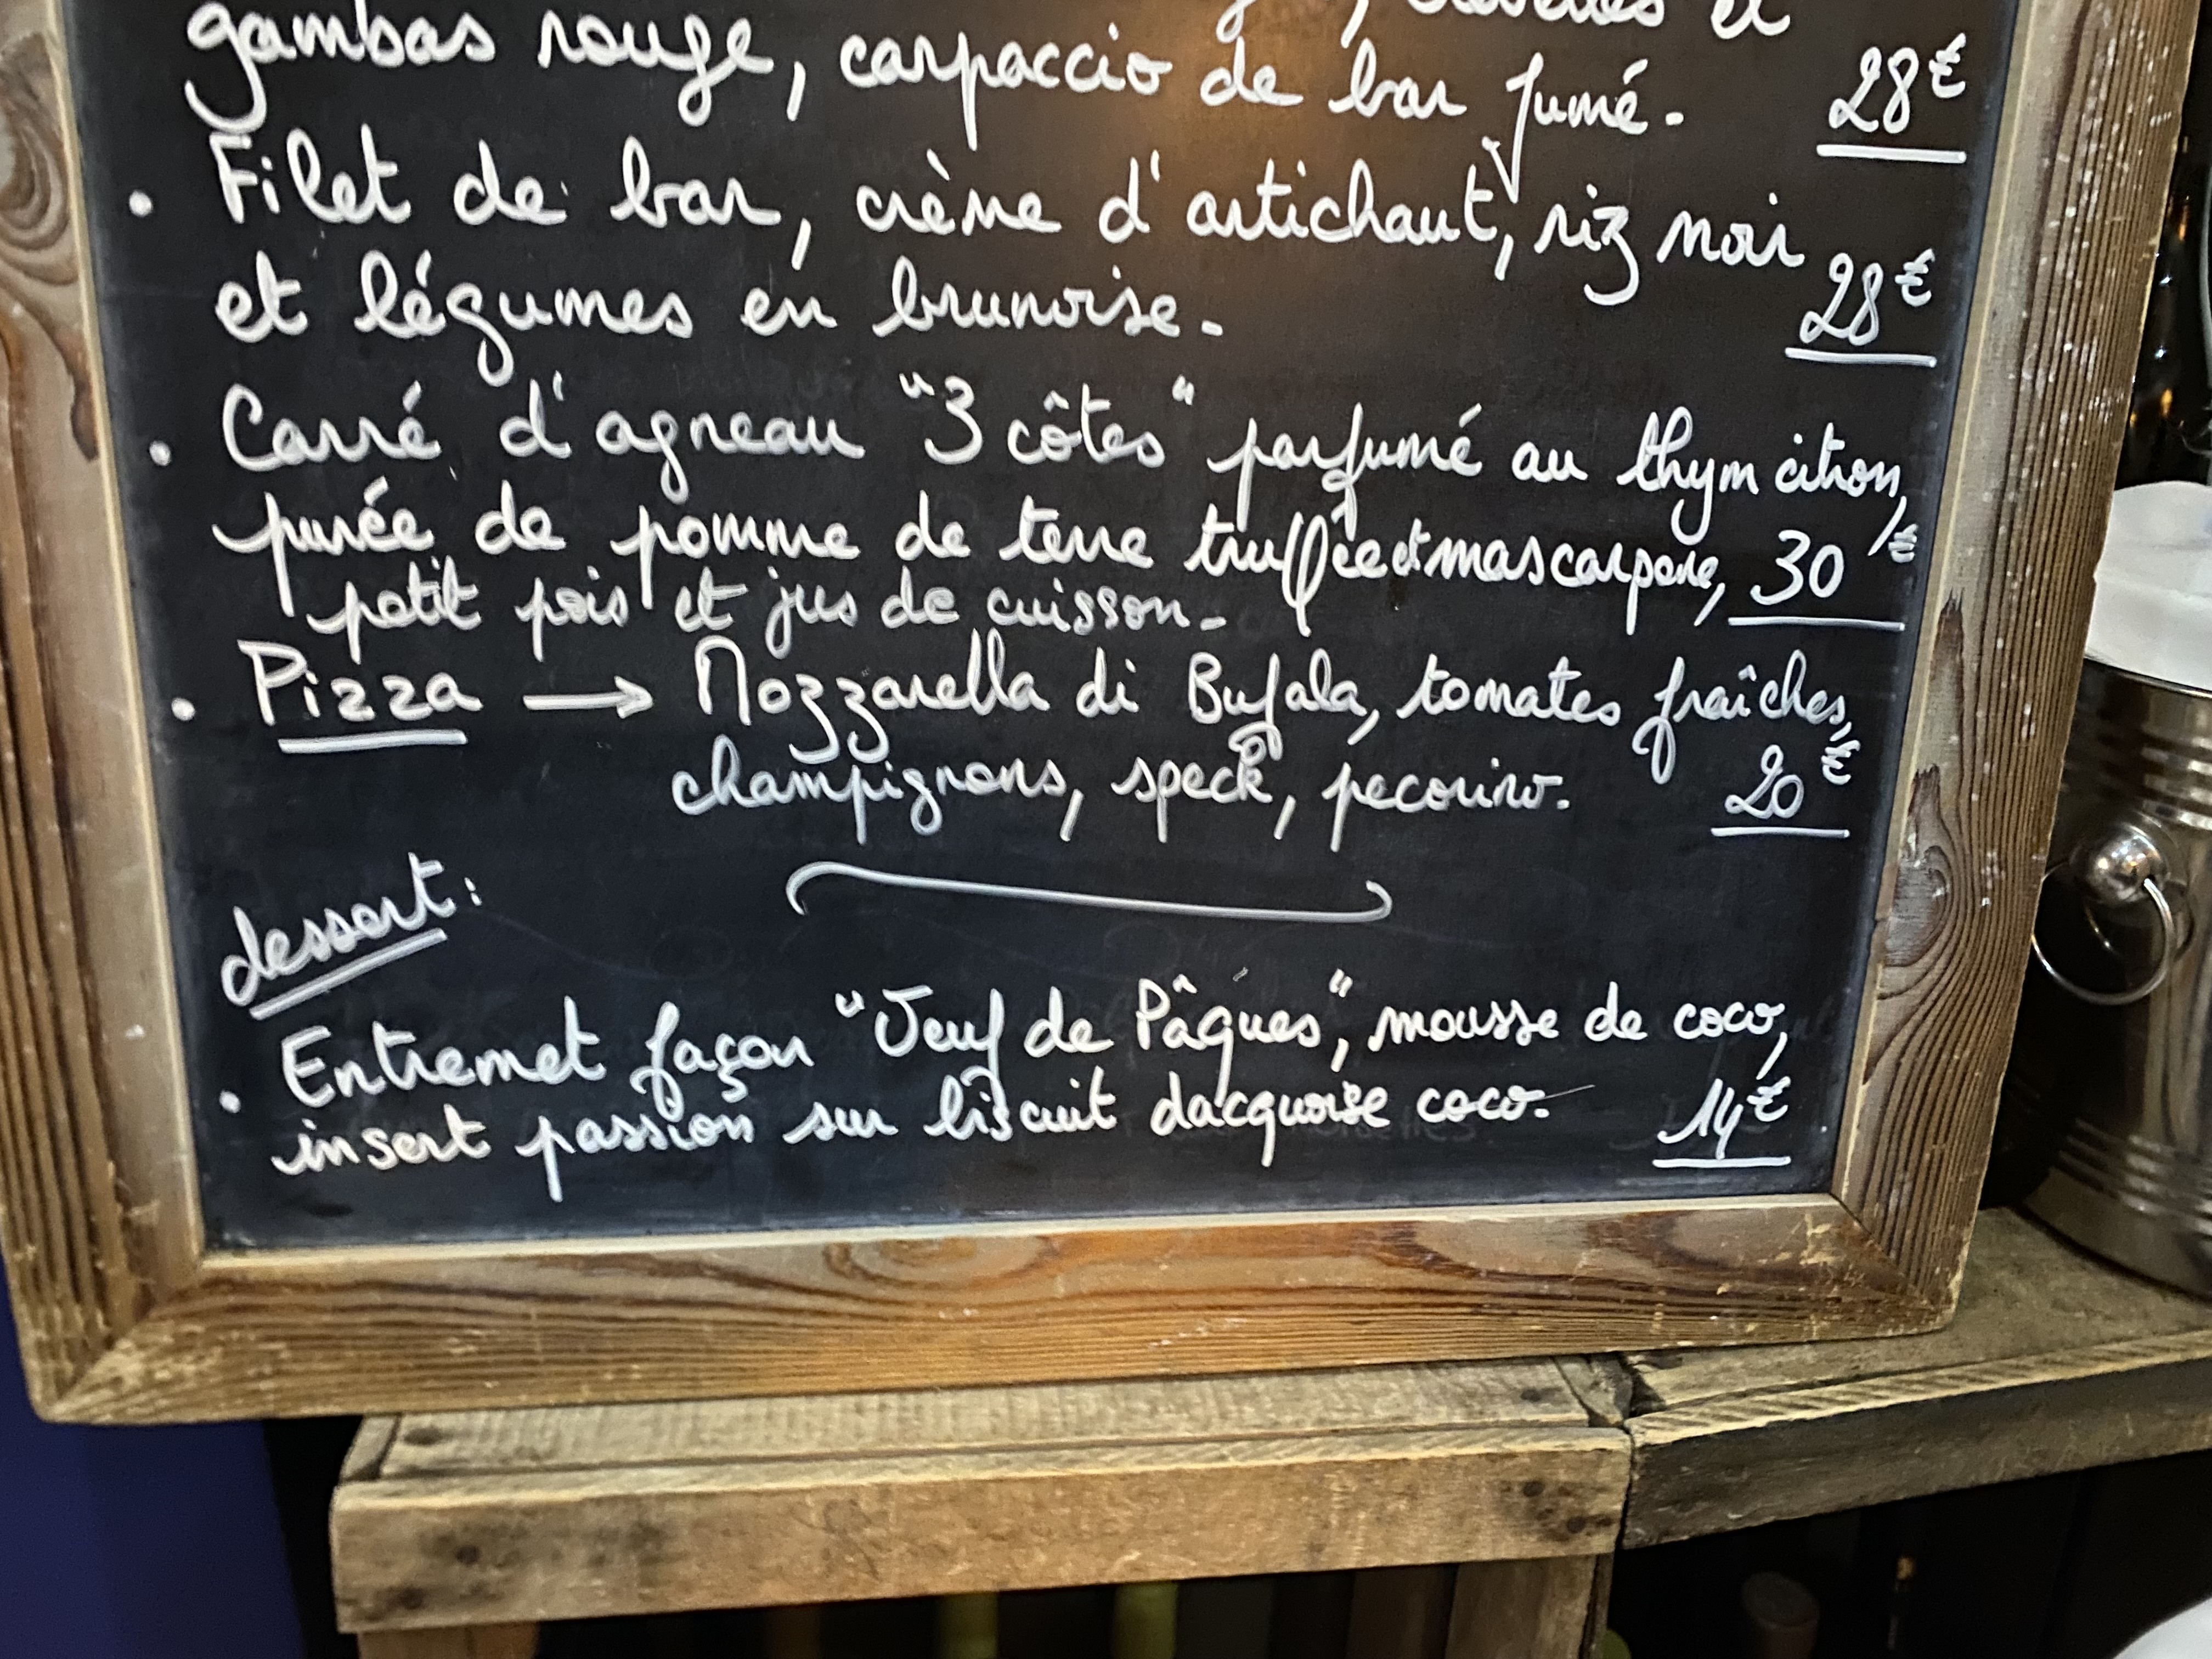 et
gambas rouge, carpaccio de bar fumé. 28€
• Filet de bar, crème d'artichaut, riz noir
et légumes en brunoise. 28€
• Carré d'agneau "3 côtes" parfumé au thym citron,
purée de pomme de terre truffée et mascarpone, 30€
petit pois et jus de cuisson.
• Pizza → Mozzarella di Bufala, tomates fraîches,
champignons, speck, pecorino. 20€
dessert:
• Entremet façon "Oeuf de Pâques", mousse de coco,
insert passion sur biscuit dacquoise coco. 14€